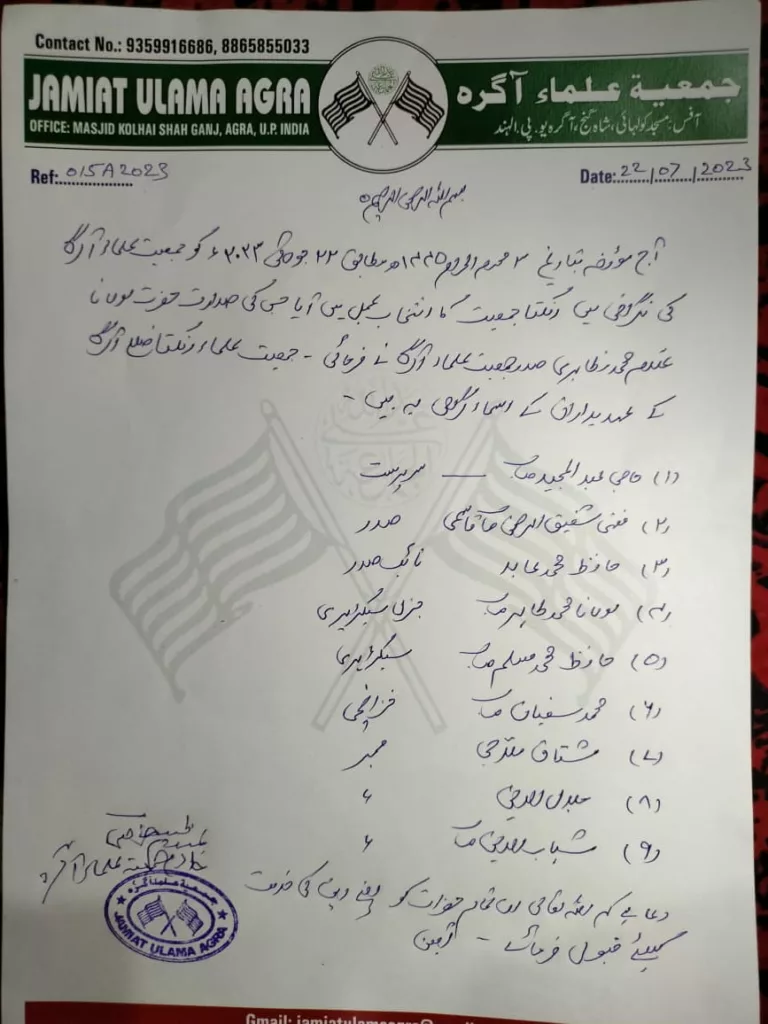 Contact No.: 9359916686, 8865855033
JAMIAT ULAMA AGRA
جمعية علماء آگرہ
OFFICE: MASJID KOLHAI SHAH GANJ, AGRA, U.P. INDIA
آفس: مسجد کولہائی، شاہ گنج، آگرہ یو۔پی۔ الہند
Ref: 015A2023
Date: 22/07/2023
بسم اللہ الرحمن الرحیم
آج مؤرخہ بتاریخ ۳ محرم الحرام ۱۴۴۵ھ مطابق ۲۲ جولائی ۲۰۲۳ء کو جمعیت علماء آگرہ
کی نگرانی میں جمعیت کا انتخاب عمل میں آیا جس کی صدارت حضرت مولانا
محمد مظاہری صدر جمعیت علماء آگرہ نے فرمائی - جمعیت علماء ضلع آگرہ
کے عہدیداران کے اسماء گرامی یہ ہیں -
(۱) حاجی عبد المجید صاحب — سرپرست
(۲) مفتی شفیق الرحمن صاحب قاسمی صدر
(۳) حافظ محمد عابد نائب صدر
(۴) مولانا محمد طاہر صاحب جنرل سیکریٹری
(۵) حافظ محمد مسلم صاحب سیکریٹری
(۶) محمد سفیان صاحب خزانچی
(۷) مشتاق ممبر
(۸) جلال الدین 〃
(۹) شہاب الدین صاحب 〃
دعا ہے کہ اللہ تعالی ان تمام حضرات کو اپنے دین کی خدمت
کیلئے قبول فرمائے - آمین
جمعیة علماء آگرہ
JAMIAT ULAMA AGRA